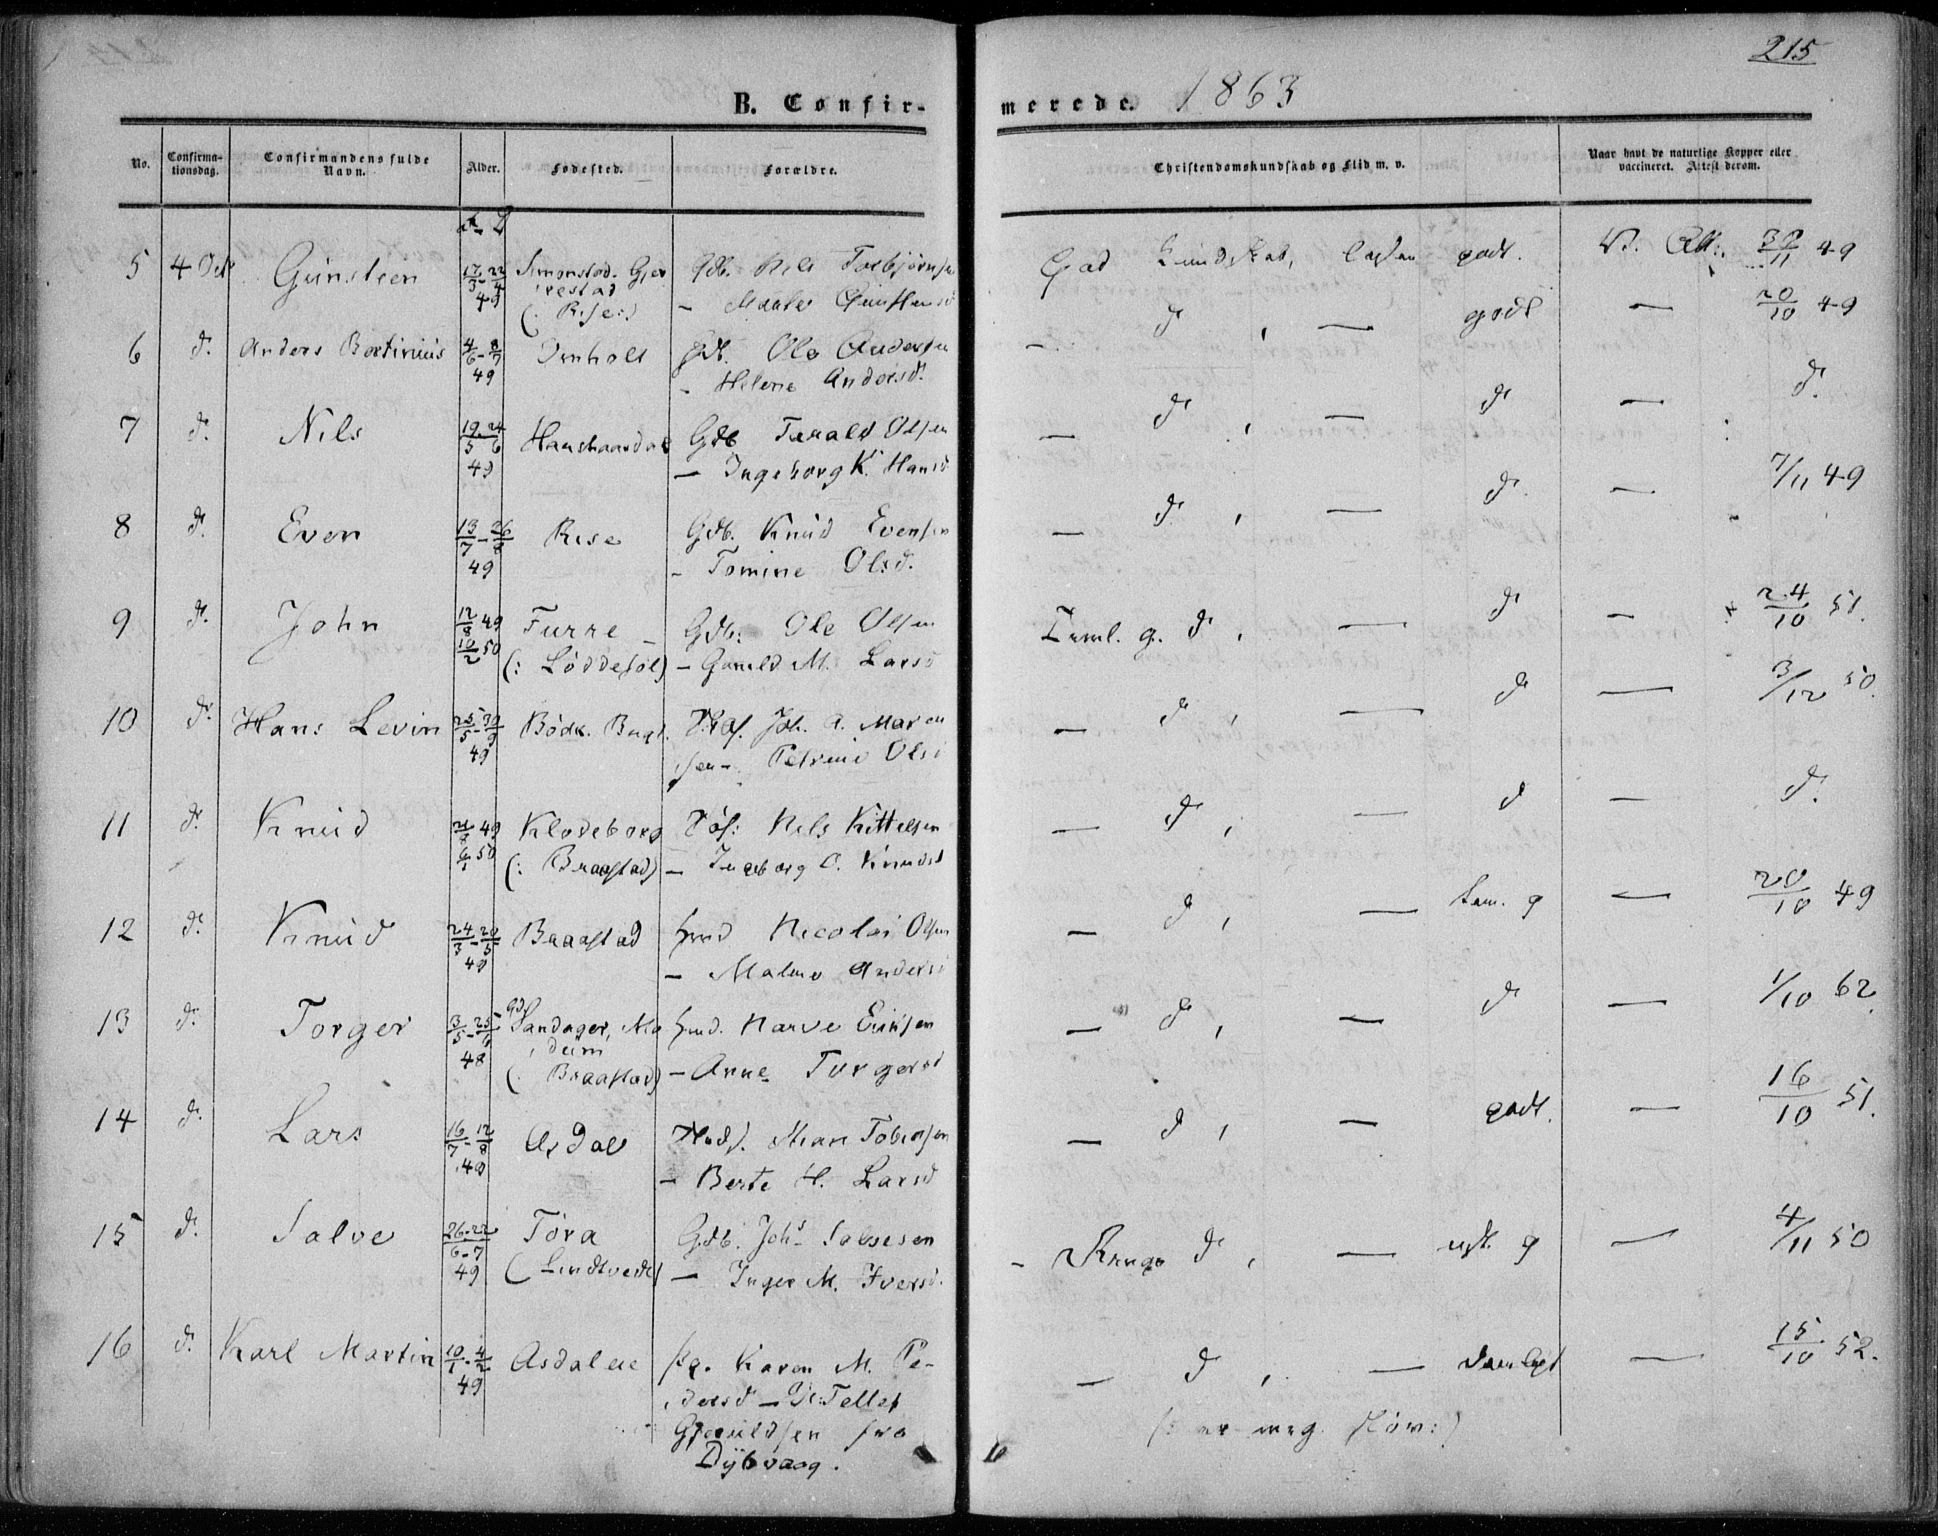 215
B. Confir-
merede. 1863
No.
Confirma-
tionsdag.
Confirmandens fulde
Navn.
Alder.
Fødested.
Forældre.
Christendomskundskab og Flid m. v.
Naar havt de naturlige Kopper eller
vaccineret. Attest derom.
5 4 Oct Gunsteen 17/3-22/4 49 Simonstad. Gjer
restad
(: Rise:)
Gdb. Nils Torbjørnsen
God Kundskab, godt. V. Att: 30/11 49
6 d. Anders Bertinius 4/6-8/7 49 Ornholt Gdb. Ole Andersen
- Helene Andersd.
— d , — godt — 20/10 49
7 d. Nils 19/5-24/6 49 Gdb Terald Olsen
— Ingeborg K. Hansd
— d , — d — d.
8 d. Even 13/7-26/8 49 Rise Gdb. Knud Evensen
- Tomine Olsd.
— d , — d. — 7/11 49
9 d. John 12/8 49 10/2 50 Furre –
(: Løddesøl)
Gdb: Ole Olsen
- Gunild M. Larsd
Teml. g. d , — d — 24/10 51.
10 d. Hans Levin 25/5-30/9 49 Bødk. Bugt. Joh. A. Maren
sen - Petrine Olsd
— d , — d — 3/12 50.
11 d. Knud 49 6/1 50 Klodeborg
(: Braastad)
Nils Kittelsen
— Ingeborg O. Knudsd
— d , — d — d.
12 d. Knud 24/3-20/5 49 Braastad Hmd Nicolai Olsen
— Malene Andersd
— d , — tem. g — 20/10 49
13 d. Torger 3/5-25/6 48 Sandager,
(: Braastad)
Hmd. Narve Eriksen
— Anne Torgersd
— d , — d — 1/10 62
14 d. Lars 16/7-12/8 49 Asdal
— Berte H. Larsd
— d , — godt. — 16/10 51.
15 d. Salve 26/6-22/7 49 Tora
(: Lindtvedt)
Gdb. Johs Salvesen
— Inger M. Iversd.
- Ringe d , — g — 4/11 50
16 d. Karl Martin 10/1-4/2 49 Asdaleie Karen M. Pe-
dersd — Tellef
fra
Dybvaag.
— d , — temligt — 15/10 52.
(: er meg. sløv:)